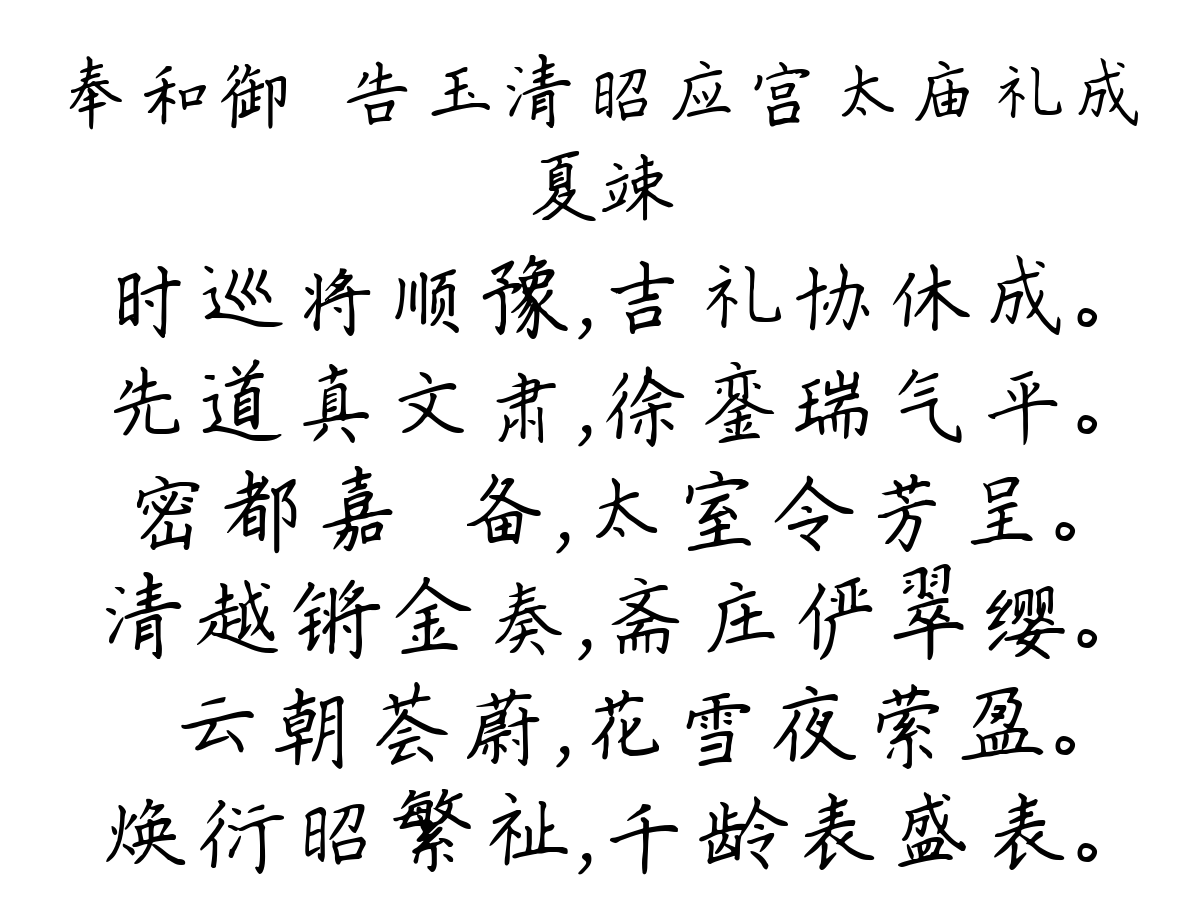 奉和御 告玉清昭应宫太庙礼成
夏竦
时巡将顺豫,吉礼协休成。
先道真文肃,徐銮瑞气平。
密都嘉 备,太室令芳呈。
清越锵金奏,斋庄俨翠缨。
云朝荟蔚,花雪夜萦盈。
焕衍昭繁祉,千龄表盛表。